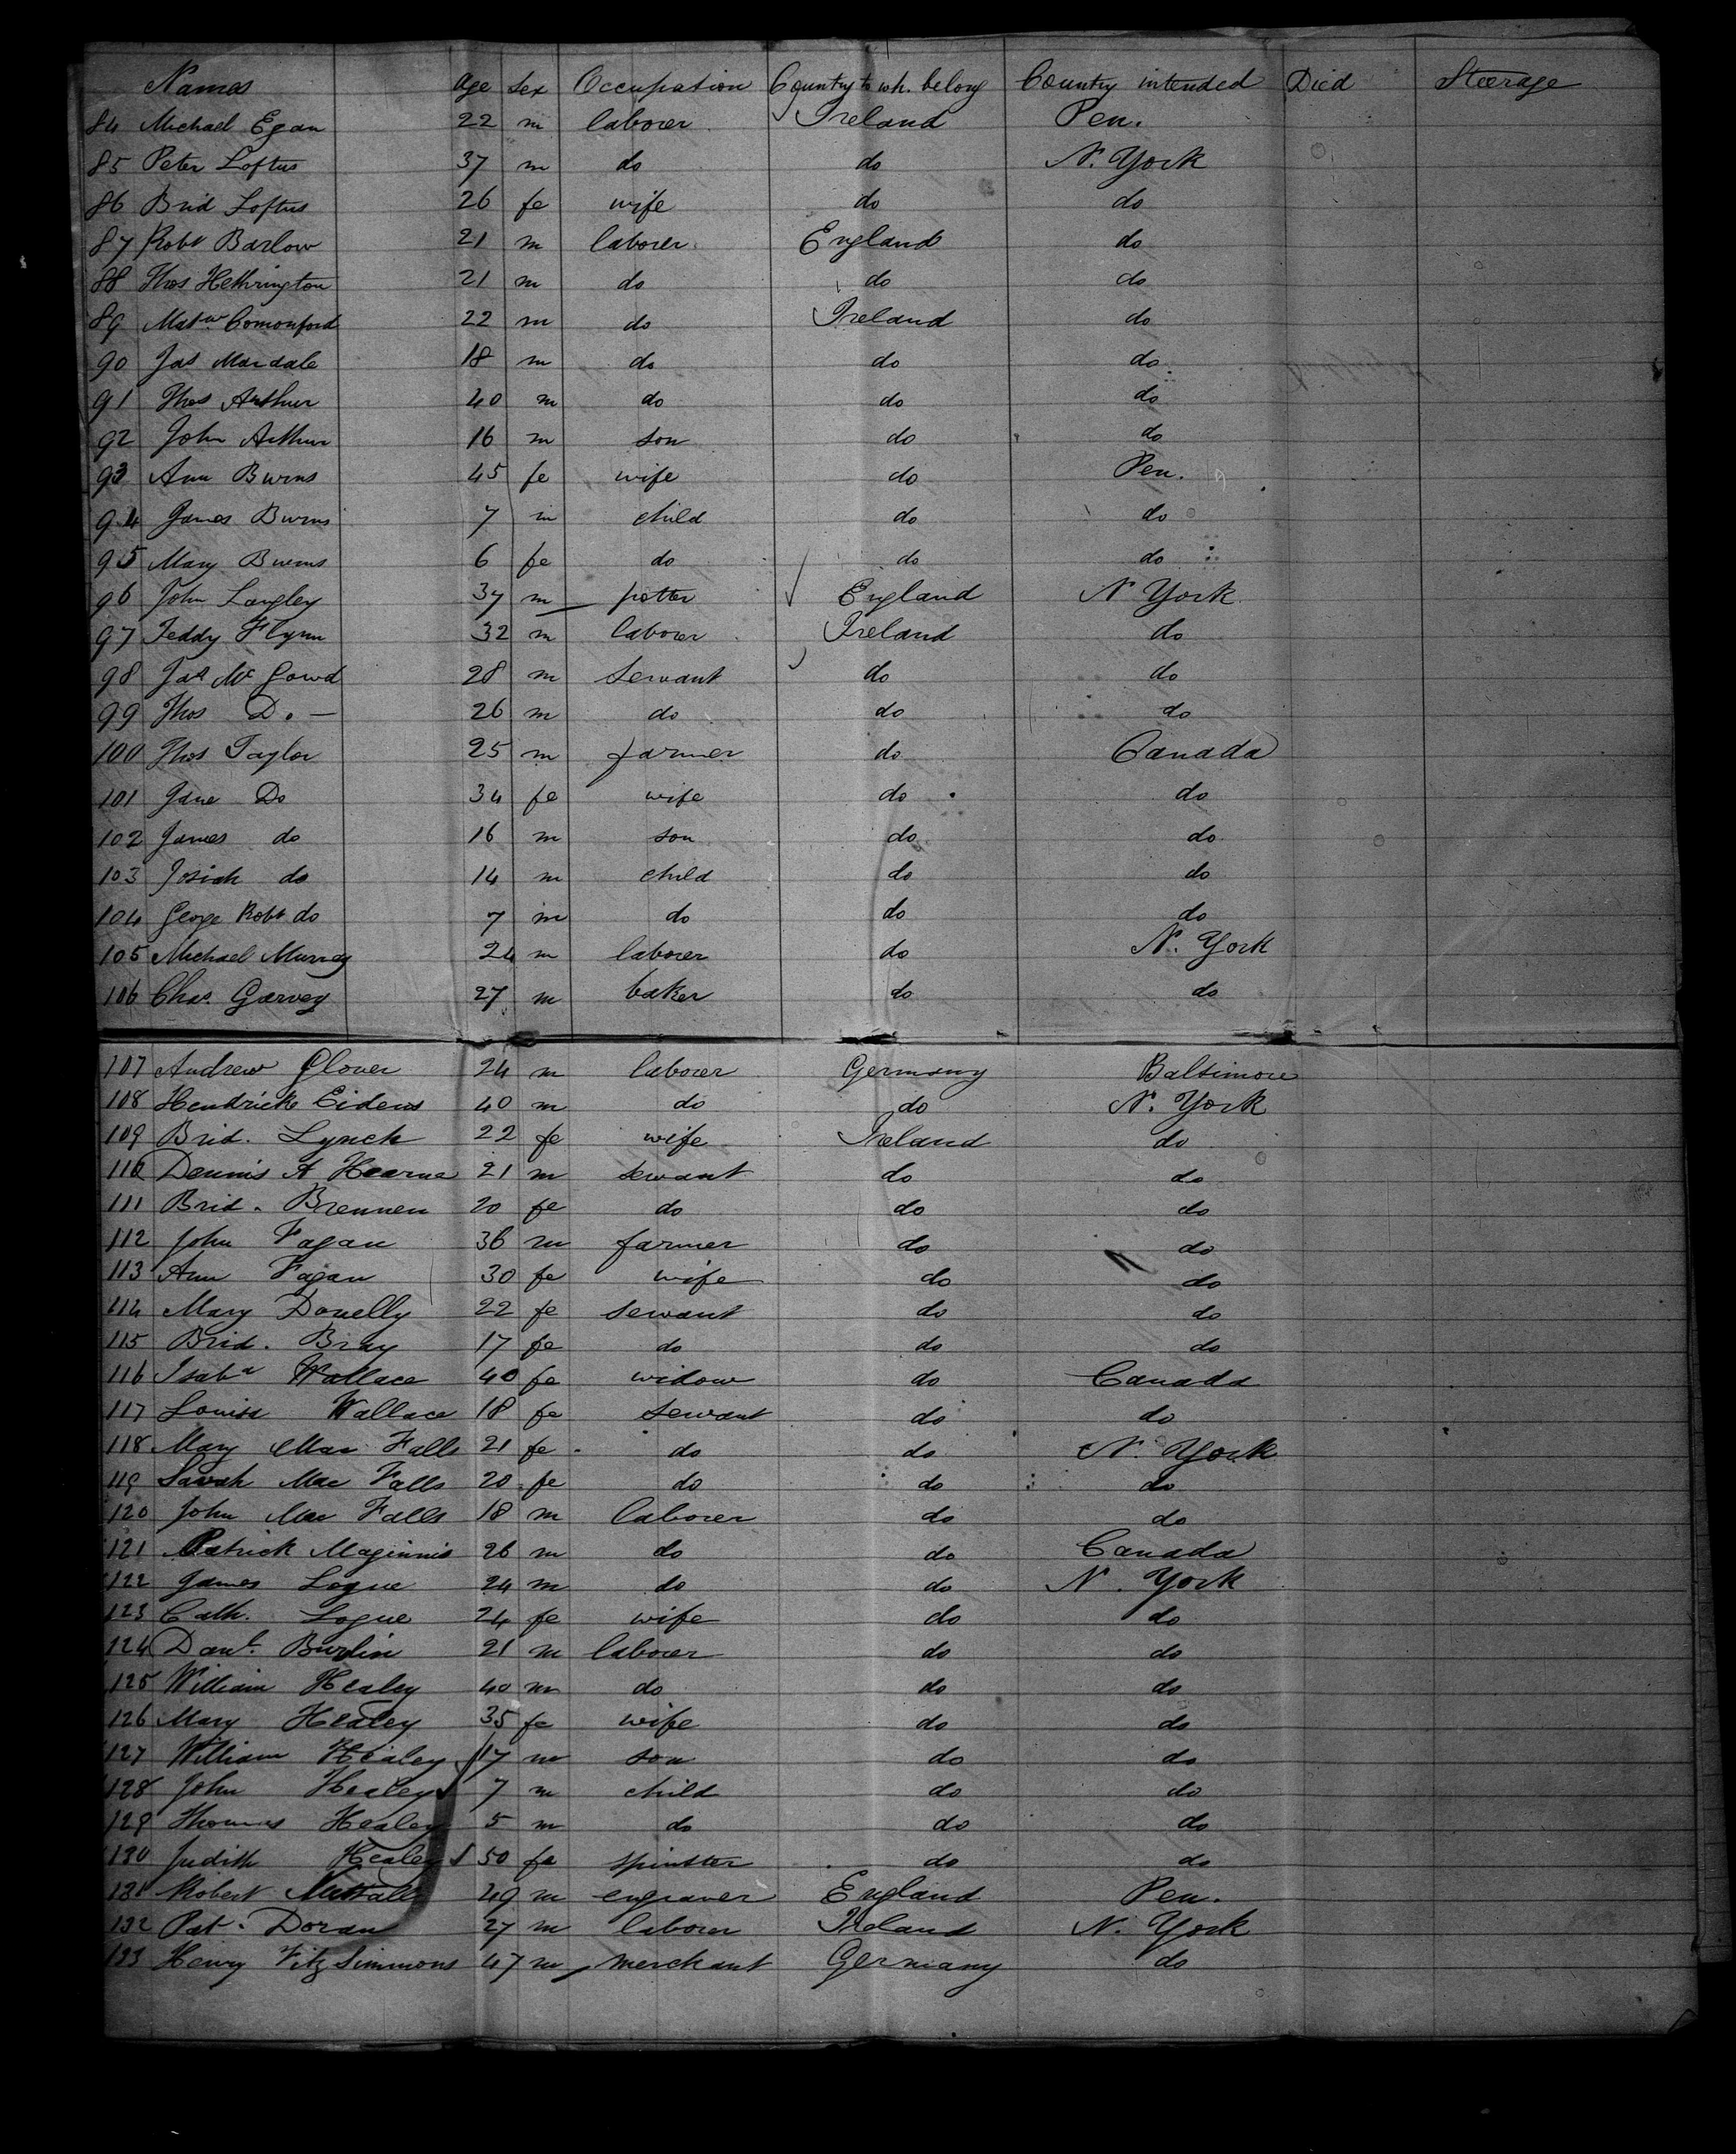 Names Age Sex Occupation Country to wh. belong Country intended Died Steerage
84 Michael Egan 22 m laborer Ireland Pen.
85 Peter Loftus 37 m do do N. York
86 Brid Loftus 26 fe wife do do
87 Robt Barlow 21 m laborer England do
88 Thos Hethrington 21 m do do do
89 Matw. Comonford 22 m do Ireland do
90 Jas Mardale 18 m do do do
91 Thos Arthur 40 m do do do
92 John Arthur 16 m son do do
93 Ann Burns 45 fe wife do Pen.
94 James Burns 7 m child do do
95 Mary Burns 6 fe do do do
96 John Langley 37 m potter England N York
97 Teddy Flynn 32 m laborer Ireland do
98 Jas Mc Gowd 28 m servant do do
99 Thos Do. — 26 m do do do
100 Thos Taylor 25 m farmer do Canada
101 Jane Do 34 fe wife do do
102 James do 16 m son do do
103 Josiah do 14 m child do do
104 George Robt do 7 m do do do
105 Michael Murray 24 m laborer do N. York
106 Chas. Garvey 27 m baker do do
107 Andrew Glover 24 m laborer Germany Baltimore
108 Hendricke Eidens 40 m do do N. York
109 Brid. Lynch 22 fe wife Ireland do
110 Dennis A Hearne 21 m servant do do
111 Brid. Brennen 20 fe do do do
112 John Fagan 36 m farmer do do
113 Ann Fagan 30 fe wife do do
114 Mary Donelly 22 fe servant do do
115 Brid. Bray 17 fe do do do
116 Isaba Wallace 40 fe widow do Canada
117 Louisa Wallace 18 fe servant do do
118 Mary Mac Falls 21 fe do do N. York
119 Sarah Mac Falls 20 fe do do do
120 John Mac Falls 18 m laborer do do
121 Patrick Maginnis 26 m do do Canada
122 James Logue 24 m do do N. York
123 Cath. Logue 24 fe wife do do
124 Danl. Burlin 21 m laborer do do
125 William Healey 40 m do do do
126 Mary Healey 35 fe wife do do
127 William Healey 17 m son do do
128 John Healey 7 m child do do
129 Thomas Healey 5 m do do do
130 Judith Healey 50 fe spinster do do
131 Robert 49 m engraver England Pen.
132 Pat. Doran 27 m laborer Ireland N. York
133 Henry Fitz Simmons 47 m merchant Germany do